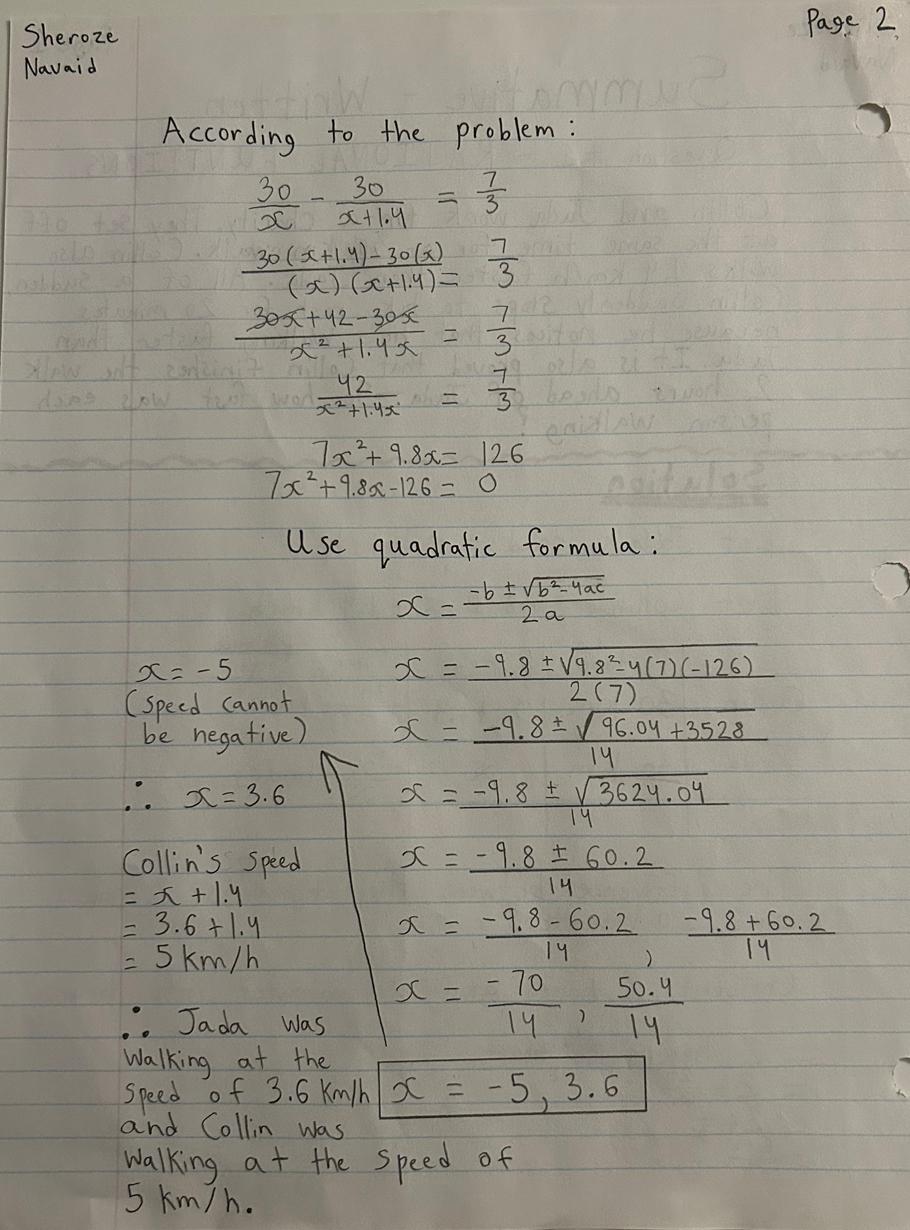 Sheroze
Navaid
Page 2
According to the problem:
30/x - 30/(x+1.4) = 7/3
(30(x+1.4)-30(x))/((x)(x+1.4)) = 7/3
(30x+42-30x)/(x²+1.4x) = 7/3
42/(x²+1.4x) = 7/3
7x²+9.8x = 126
7x²+9.8x-126 = 0
Use quadratic formula:
x = (-b ± √(b²-4ac))/(2a)
x = (-9.8 ± √(9.8²-4(7)(-126)))/(2(7))
x = (-9.8 ± √(96.04+3528))/14
x = (-9.8 ± √(3624.04))/14
x = (-9.8 ± 60.2)/14
x = (-9.8-60.2)/14 , (-9.8+60.2)/14
x = -70/14 , 50.4/14
x = -5, 3.6
x = -5
(Speed cannot
be negative)
∴ x = 3.6
Collin's Speed
= x+1.4
= 3.6+1.4
= 5 km/h
∴ Jada was
walking at the
speed of 3.6 Km/h
and Collin was
walking at the speed of
5 km/h.